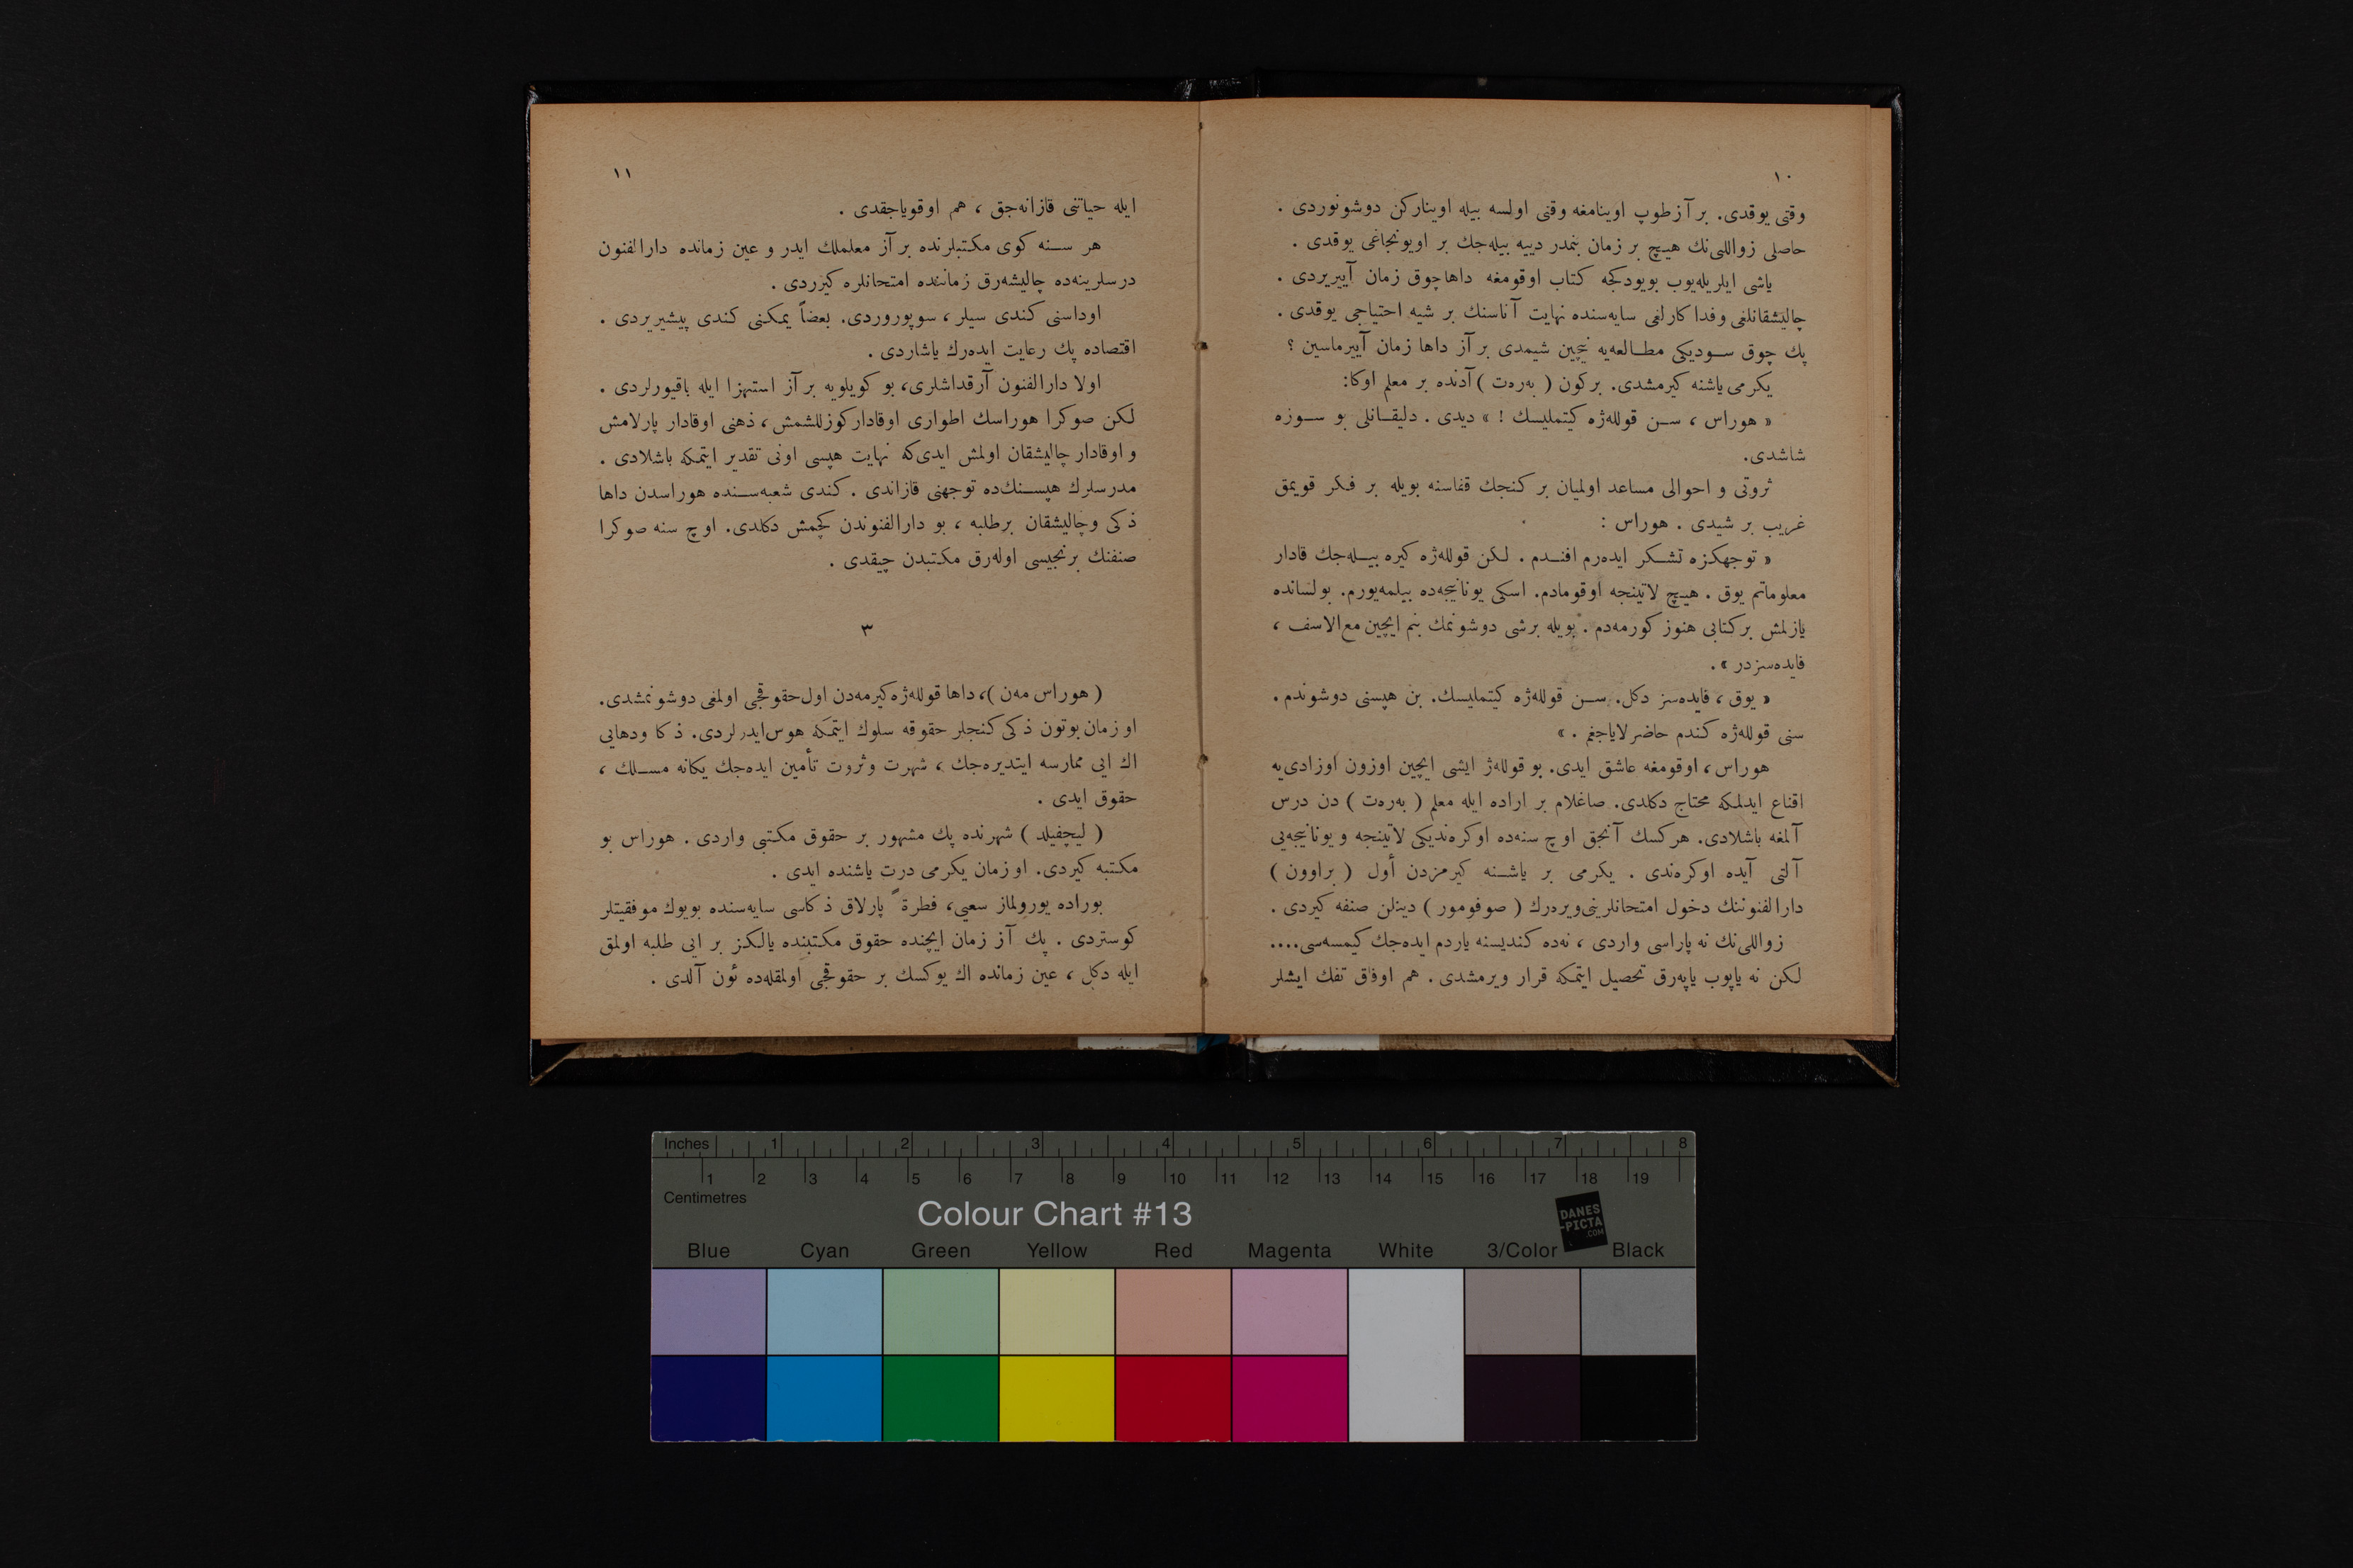 ١٠
وقتی یوقدی. بر آز طوپ اوینامغه وقتی اولسه بیله اوینارکن دوشونوردی .
حاصلی زواللی‌نك هیچ بر زمان بنمدر دییه بیله‌جك بر اویونجاغی یوقدی .
یاشی ایلریله‌یوب بویودکجه کتاب اوقومغه داها چوق زمان آییریردی .
چالیشقانلغی وفداکارلغی سایه‌سنده نهایت آناسنك بر شیه احتیاجی یوقدی .
پك چوق سودیکی مطالعه‌یه نیچین شیمدی بر آز داها زمان آییرماسین ؟
یکرمی یاشنه کیرمشدی. برکون ( به‌ره‌ت ) آدنده بر معلم اوکا:
« هوراس ، سن قولله‌ژه کیتملیسك ! » دیدی . دلیقانلی بو سوزه
شاشدی.
ثروتی و احوالی مساعد اولمیان بر کنجك قفاسنه بویله بر فکر قویمق
غریب بر شیدی . هوراس :
« توجهکزه تشکر ایده‌رم افندم . لکن قولله‌ژه کیره بیله‌جك قادار
معلوماتم یوق . هیچ لاتینجه اوقومادم. اسکی یونانیجه‌ده بیلمه‌یورم. بولسانده
یازلمش برکتابی هنوز کورمه‌دم . بویله برشی دوشونمك بنم ایچین مع‌الاسف ،
فایده‌سزدر » .
« یوق ، فایده‌سز دکل. سن قولله‌ژه کیتملیسك. بن هپسنی دوشوندم .
سنی قولله‌ژه کندم حاضرلایاجغم . »
هوراس، اوقومغه عاشق ایدی. بو قولله‌ژ ایشی ایچین اوزون اوزادی‌یه
اقناع ایدلمکه محتاج دکلدی. صاغلام بر اراده ایله معلم ( به‌ره‌ت ) دن درس
آلمغه باشلادی. هرکسك آنجق اوچ سنه‌ده اوکره‌ندیکی لاتینجه و یونانیجه‌یی
آلتی آیده اوکره‌ندی . یکرمی بر یاشنه کیرمزدن أول ( براوون )
دارالفنوننك دخول امتحانلرینی‌ویره‌رك ( صوفومور ) دینلن صنفه کیردی .
زواللی‌نك نه پاراسی واردی ، نه‌ده کندیسنه یاردم ایده‌جك کیمسه‌سی....
لکن نه یاپوب یاپه‌رق تحصیل ایتمکه قرار ویرمشدی . هم اوفاق تفك ایشلر
١١
ایله حیاتنی قازانه‌جق ، هم اوقویاجقدی .
هر سنه کوی مکتبلرنده بر آز معلملك ایدر و عین زمانده دارالفنون
درسلرینه‌ده چالیشه‌رق زماننده امتحانلره کیرردی .
اوداسنی کندی سیلر ، سوپوروردی. بعضاً یمکنی کندی پیشیریردی .
اقتصاده پك رعایت ایده‌رك یاشاردی .
اولا دارالفنون آرقداشلری، بو کویلویه بر آز استهزا ایله باقیورلردی .
لکن صوکرا هوراسك اطواری اوقادار کوزللشمش ، ذهنی اوقادار پارلامش
و اوقادار چالیشقان اولمش ایدی‌که نهایت هپسی اونی تقدیر ایتمکه باشلادی .
مدرسلرك هپسنك‌ده توجهنی قازاندی . کندی شعبه‌سنده هوراسدن داها
ذکی وچالیشقان برطلبه ، بو دارالفنوندن کچمش دکلدی. اوچ سنه صوکرا
صنفنك برنجیسی اوله‌رق مکتبدن چیقدی .
٣
( هوراس مه‌ن )، داها قولله‌ژه کیرمه‌دن اول حقوقجی اولمغی دوشونمشدی.
او زمان بوتون ذکی کنجلر حقوقه سلوك ایتمکه هوس ایدرلردی. ذکا ودهایی
اك ایی ممارسه ایتدیره‌جك ، شهرت وثروت تأمین ایده‌جك یکانه مسلك ،
حقوق ایدی .
( لیچفیلد ) شهرنده پك مشهور بر حقوق مکتبی واردی . هوراس بو
مکتبه کیردی. او زمان یکرمی درت یاشنده ایدی .
بوراده یورولماز سعیی، فطرةً پارلاق ذکاسی سایه‌سنده بویوك موفقیتلر
کوستردی . پك آز زمان ایچنده حقوق مکتبنده یالکز بر ایی طلبه اولمق
ایله دکل ، عین زمانده اك یوکسك بر حقوقجی اولمقله‌ده ئون آلدی .
Inches 1 2 3 4 5 6 7 8
1 2 3 4 5 6 7 8 9 10 11 12 13 14 15 16 17 18 19
Centimetres
Colour Chart #13
DANES
-PICTA
.COM
Blue Cyan Green Yellow Red Magenta White 3/Color Black